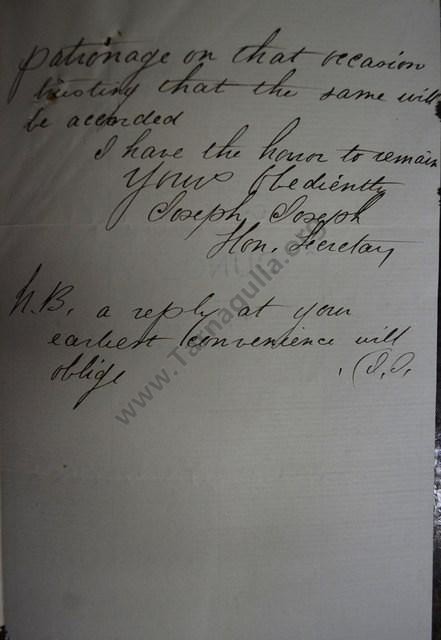 patronage on that occasion
trusting that the same will
be accorded
I have the honor to remain
Yours Obediently
Joseph Joseph
Hon. Secretary
N.B. a reply at your
earliest convenience will
oblige . (J. J.
www.Tarnagulla.org